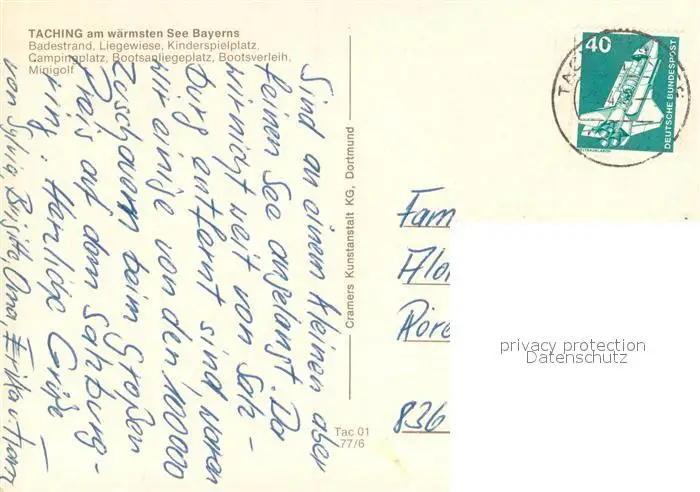 TACHING am wärmsten See Bayerns
Badestrand, Liegewiese, Kinderspielplatz,
Campingplatz, Bootsanliegeplatz, Bootsverleih,
Minigolf
Sind an einem kleinen aber
feinen See angelangt. Da
wir nicht weit von Salz-
burg entfernt sind, waren
wir einige von den 100000
Zuschauern beim Großen
Preis auf dem Salzburg-
ring. Herzliche Grüße
von Sylvia Brigitte Oma, Erika u. Franz
Cramers Kunstanstalt KG, Dortmund
Tac 01
77/6
40
DEUTSCHE BUNDESPOST
WELTRAUMLABOR
TAC
Fam
836
privacy protection
Datenschutz